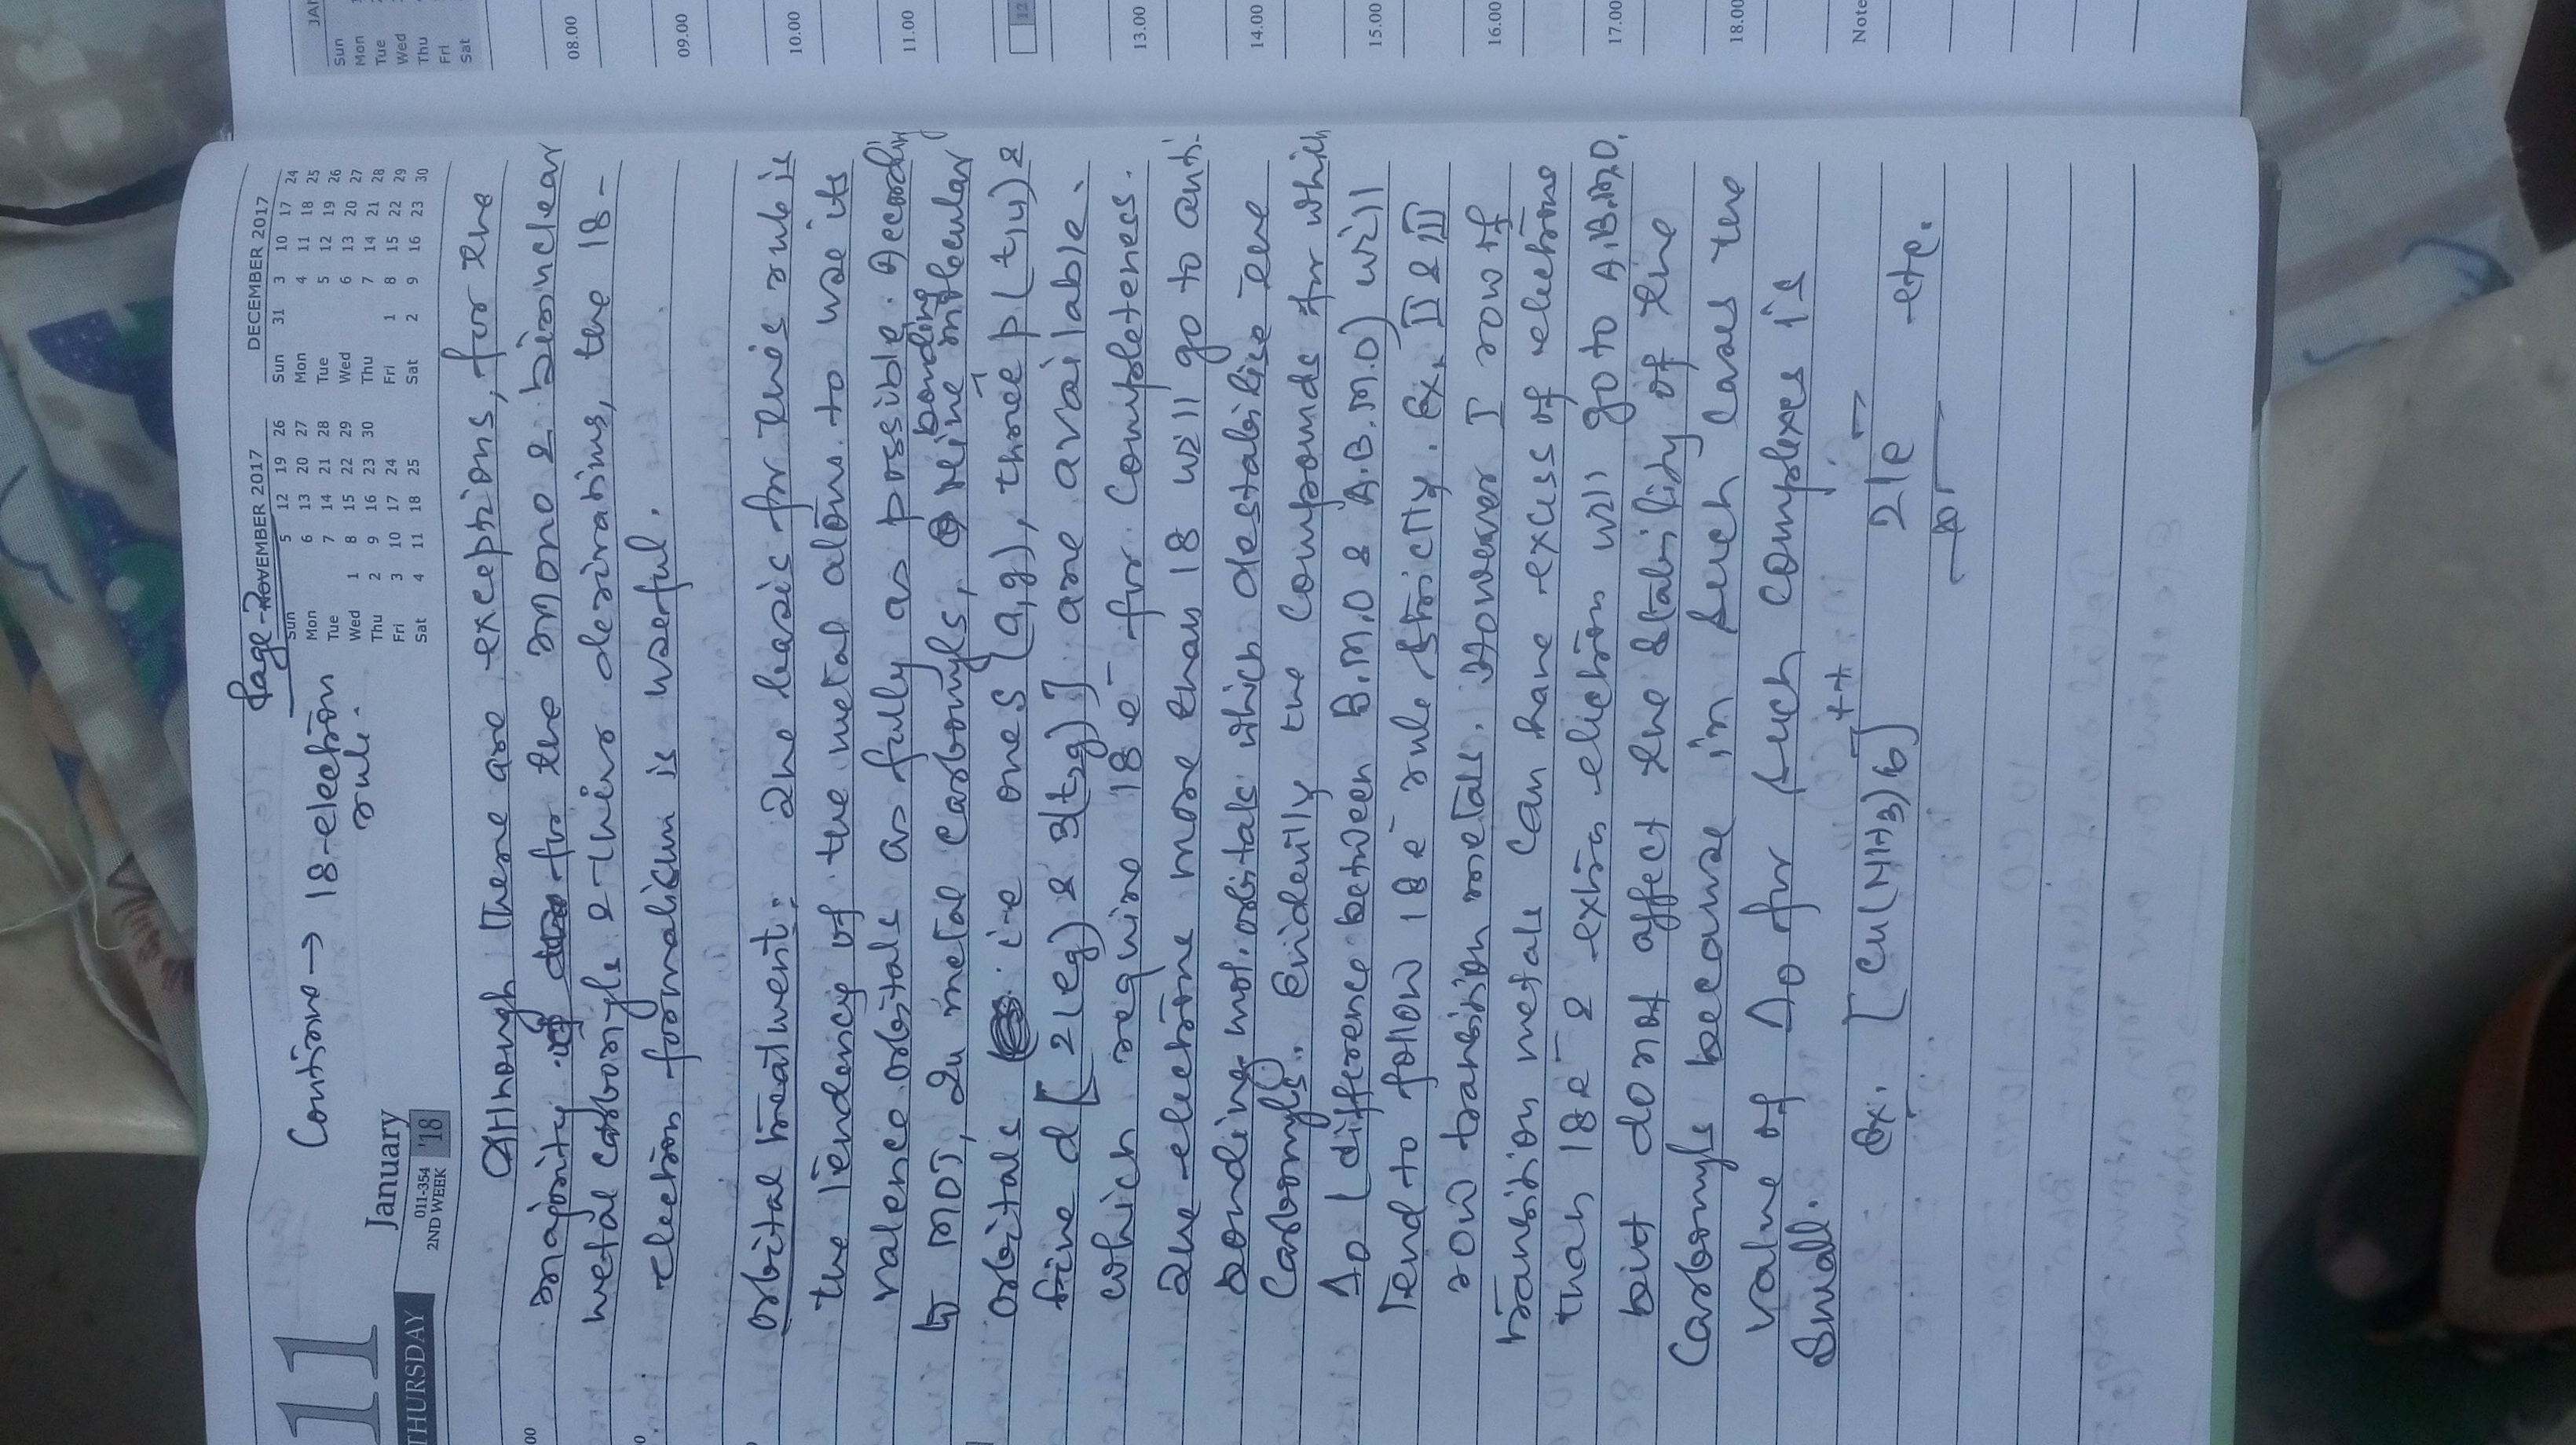 Page-7
Continue → 18-electron
rule.
11
THURSDAY
January
011-354
2ND WEEK
'18
NOVEMBER 2017
Sun 5 12 19 26
Mon 6 13 20 27
Tue 7 14 21 28
Wed 1 8 15 22 29
Thu 2 9 16 23 30
Fri 3 10 17 24
Sat 4 11 18 25
DECEMBER 2017
Sun 31 3 10 17 24
Mon 4 11 18 25
Tue 5 12 19 26
Wed 6 13 20 27
Thu 7 14 21 28
Fri 1 8 15 22 29
Sat 2 9 16 23 30
Although there are exceptions, for the
majority for the mono & binuclear
metal carbonyls & their derivatives, the 18-
electron formalism is useful.
orbital treatment:- The basis for this rule is
the tendency of the metal atoms to use its
valence orbitals as fully as possible. According
to MOT, In metal carbonyls, nine bonding molecular
orbitals i.e one s (a1g), three p (t1u) &
five d [2(eg) & 3(t2g)] are available.
which require 18 e- for completeness.
The electrons more than 18 will go to anti-
bonding mol. orbitals which destabilise the
carbonyls. Evidently the compounds for which
Δo (difference between B.M.O & A.B.M.O) will
Tend to follow 18 e- rule strictly. Ex. II & III
row transition metals. However I row of
transition metals can have excess of electrons
than 18e- & extra electron will go to A.B.M.O.
but donot affect the stability of the
carbonyls because in such cases the
value of Δo for such complexes is
small.
Ex. [Cu(NH3)6]++ 21e- etc.
JAN
Sun
Mon
Tue
Wed
Thu
Fri
Sat
08.00
09.00
10.00
11.00
12
13.00
14.00
15.00
16.00
17.00
18.00
Note